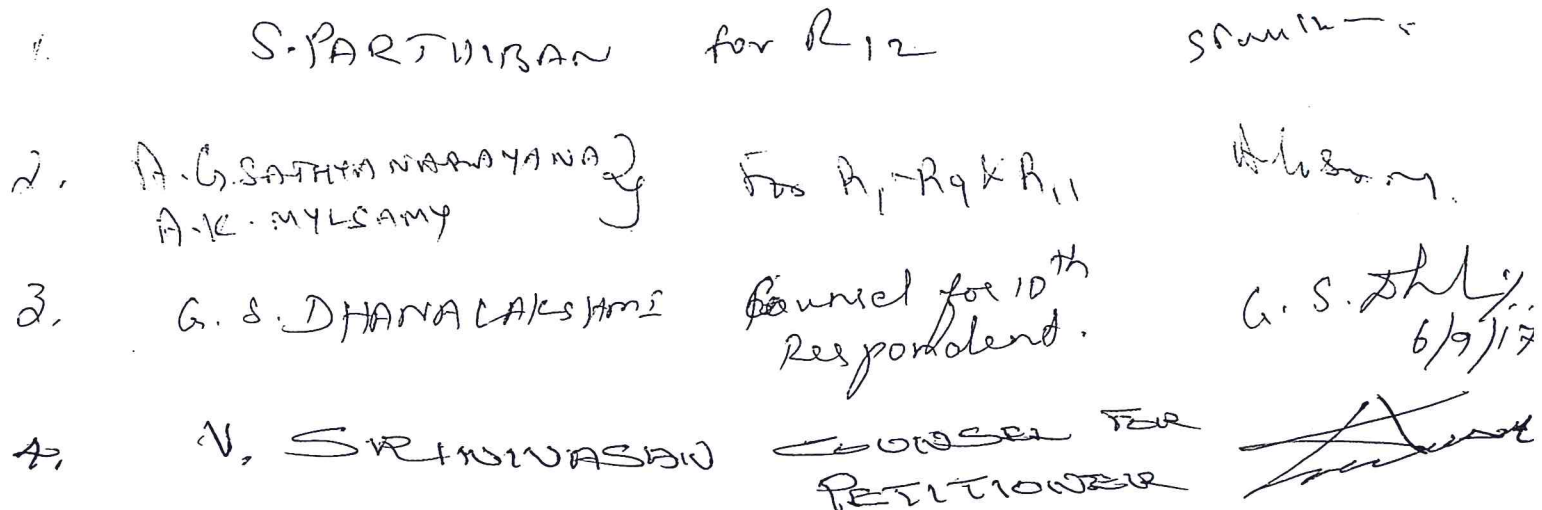 1. S. PARTHIBAN for R12
2. A.G. SATHYANARAYANA } For R1-R9 & R11
A.K. MYLSAMY
3. G. S. DHANALAKSHMI Counsel for 10th
Respondent. G. S.
6/9/17
4. V. SRINIVASAN COUNSEL FOR
PETITIONER